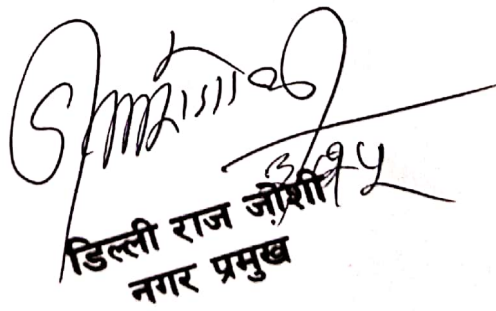 ३/१५
डिल्ली राज जोशी
नगर प्रमुख